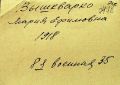 Вышеварко
Мария Ефимовна
1918
8я военная 35